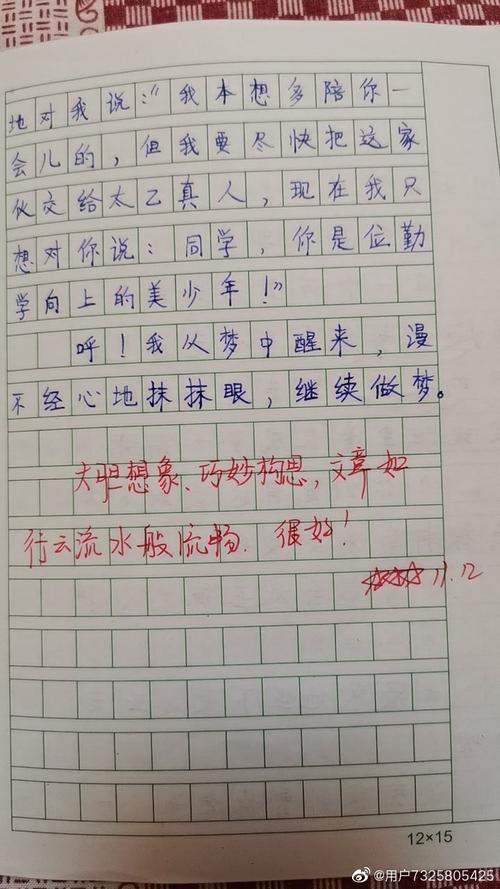 地对我说："我本想多陪你一
会儿的，但我要尽快把这家
伙交给太乙真人，现在我只
想对你说：同学，你是位勤
学向上的美少年！"
呼！我从梦中醒来，漫
不经心地抹抹眼，继续做梦。
大胆想象、巧妙构思，文章如
行云流水般流畅.很好！
☆☆☆ 11.12
12×15
@用户7325805425